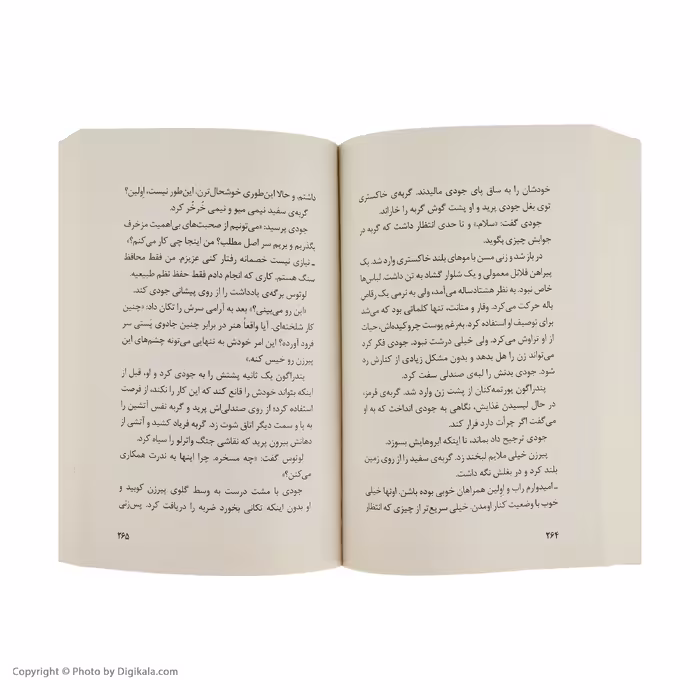 خودشان را به ساق پای جودی مالیدند. گربه‌ی خاکستری
توی بغل جودی پرید و او پشت گوش گربه را خاراند.
جودی گفت: «سلام،» و تا حدی انتظار داشت که گربه در
جوابش چیزی بگوید.
در باز شد و زنی مسن با موهای بلند خاکستری وارد شد. یک
پیراهن فلانل معمولی و یک شلوار گشاد به تن داشت. لباس‌ها
خاص نبود. به نظر هشتادساله می‌آمد، ولی به نرمی یک رقاص
باله حرکت می‌کرد. وقار و متانت، تنها کلماتی بود که می‌شد
برای توصیف او استفاده کرد. به‌رغم پوست چروکیده‌اش، حیات
از او تراوش می‌کرد. ولی خیلی درشت نبود. جودی فکر کرد
می‌تواند زن را هل بدهد و بدون مشکل زیادی از کنارش رد
شود. جودی بدنش را لبه‌ی صندلی سفت کرد.
پندراگون پورتمه‌کنان از پشت زن وارد شد. گربه‌ی قرمز،
در حال لیسیدن غذایش، نگاهی به جودی انداخت که به او
می‌گفت اگر جرأت دارد فرار کند.
جودی ترجیح داد بماند، تا اینکه ابروهایش بسوزد.
پیرزن خیلی ملایم لبخند زد. گربه‌ی سفید را از روی زمین
بلند کرد و در بغلش نگه داشت.
ـ امیدوارم راب و اولین همراهان خوبی بوده باشن. اونها خیلی
خوب با وضعیت کنار اومدن. خیلی سریع‌تر از چیزی که انتظار
۲۶۴
داشتم. و حالا این‌طوری خوشحال‌ترن، این‌طور نیست، اولین؟
گربه‌ی سفید نیمی میو و نیمی خُرخُر کرد.
جودی پرسید: «می‌تونیم از صحبت‌های بی‌اهمیت مزخرف
بگذریم و بریم سر اصل مطلب؟ من اینجا چی کار می‌کنم؟»
ـ نیازی نیست خصمانه رفتار کنی عزیزم. من فقط محافظ
سنگ هستم. کاری که انجام دادم فقط حفظ نظم طبیعیه.
لوتوس برگه‌ی یادداشت را از روی پیشانی جودی کند.
«این رو می‌بینی؟» بعد به آرامی سرش را تکان داد: «چنین
کار شلخته‌ای. آیا واقعاً هنر در برابر چنین جادوی پَستی سر
فرود آورده؟ این امر خودش به تنهایی می‌تونه چشم‌های این
پیرزن رو خیس کنه.»
پندراگون یک ثانیه پشتش را به جودی کرد و او، قبل از
اینکه بتواند خودش را قانع کند که این کار را نکند، از فرصت
استفاده کرد؛ از روی صندلی‌اش پرید و گربه نفس آتشین را
به پا و سمت دیگر اتاق شوت زد. گربه فریاد کشید و آتشی از
دهانش بیرون پرید که نقاشی جنگ واترلو را سیاه کرد.
لوتوس گفت: «چه مسخره. چرا اینها به ندرت همکاری
می‌کنن؟»
جودی با مشت درست به وسط گلوی پیرزن کوبید و
او بدون اینکه تکانی بخورد ضربه را دریافت کرد. پس‌زنی
۲۶۵
Copyright © Photo by Digikala.com